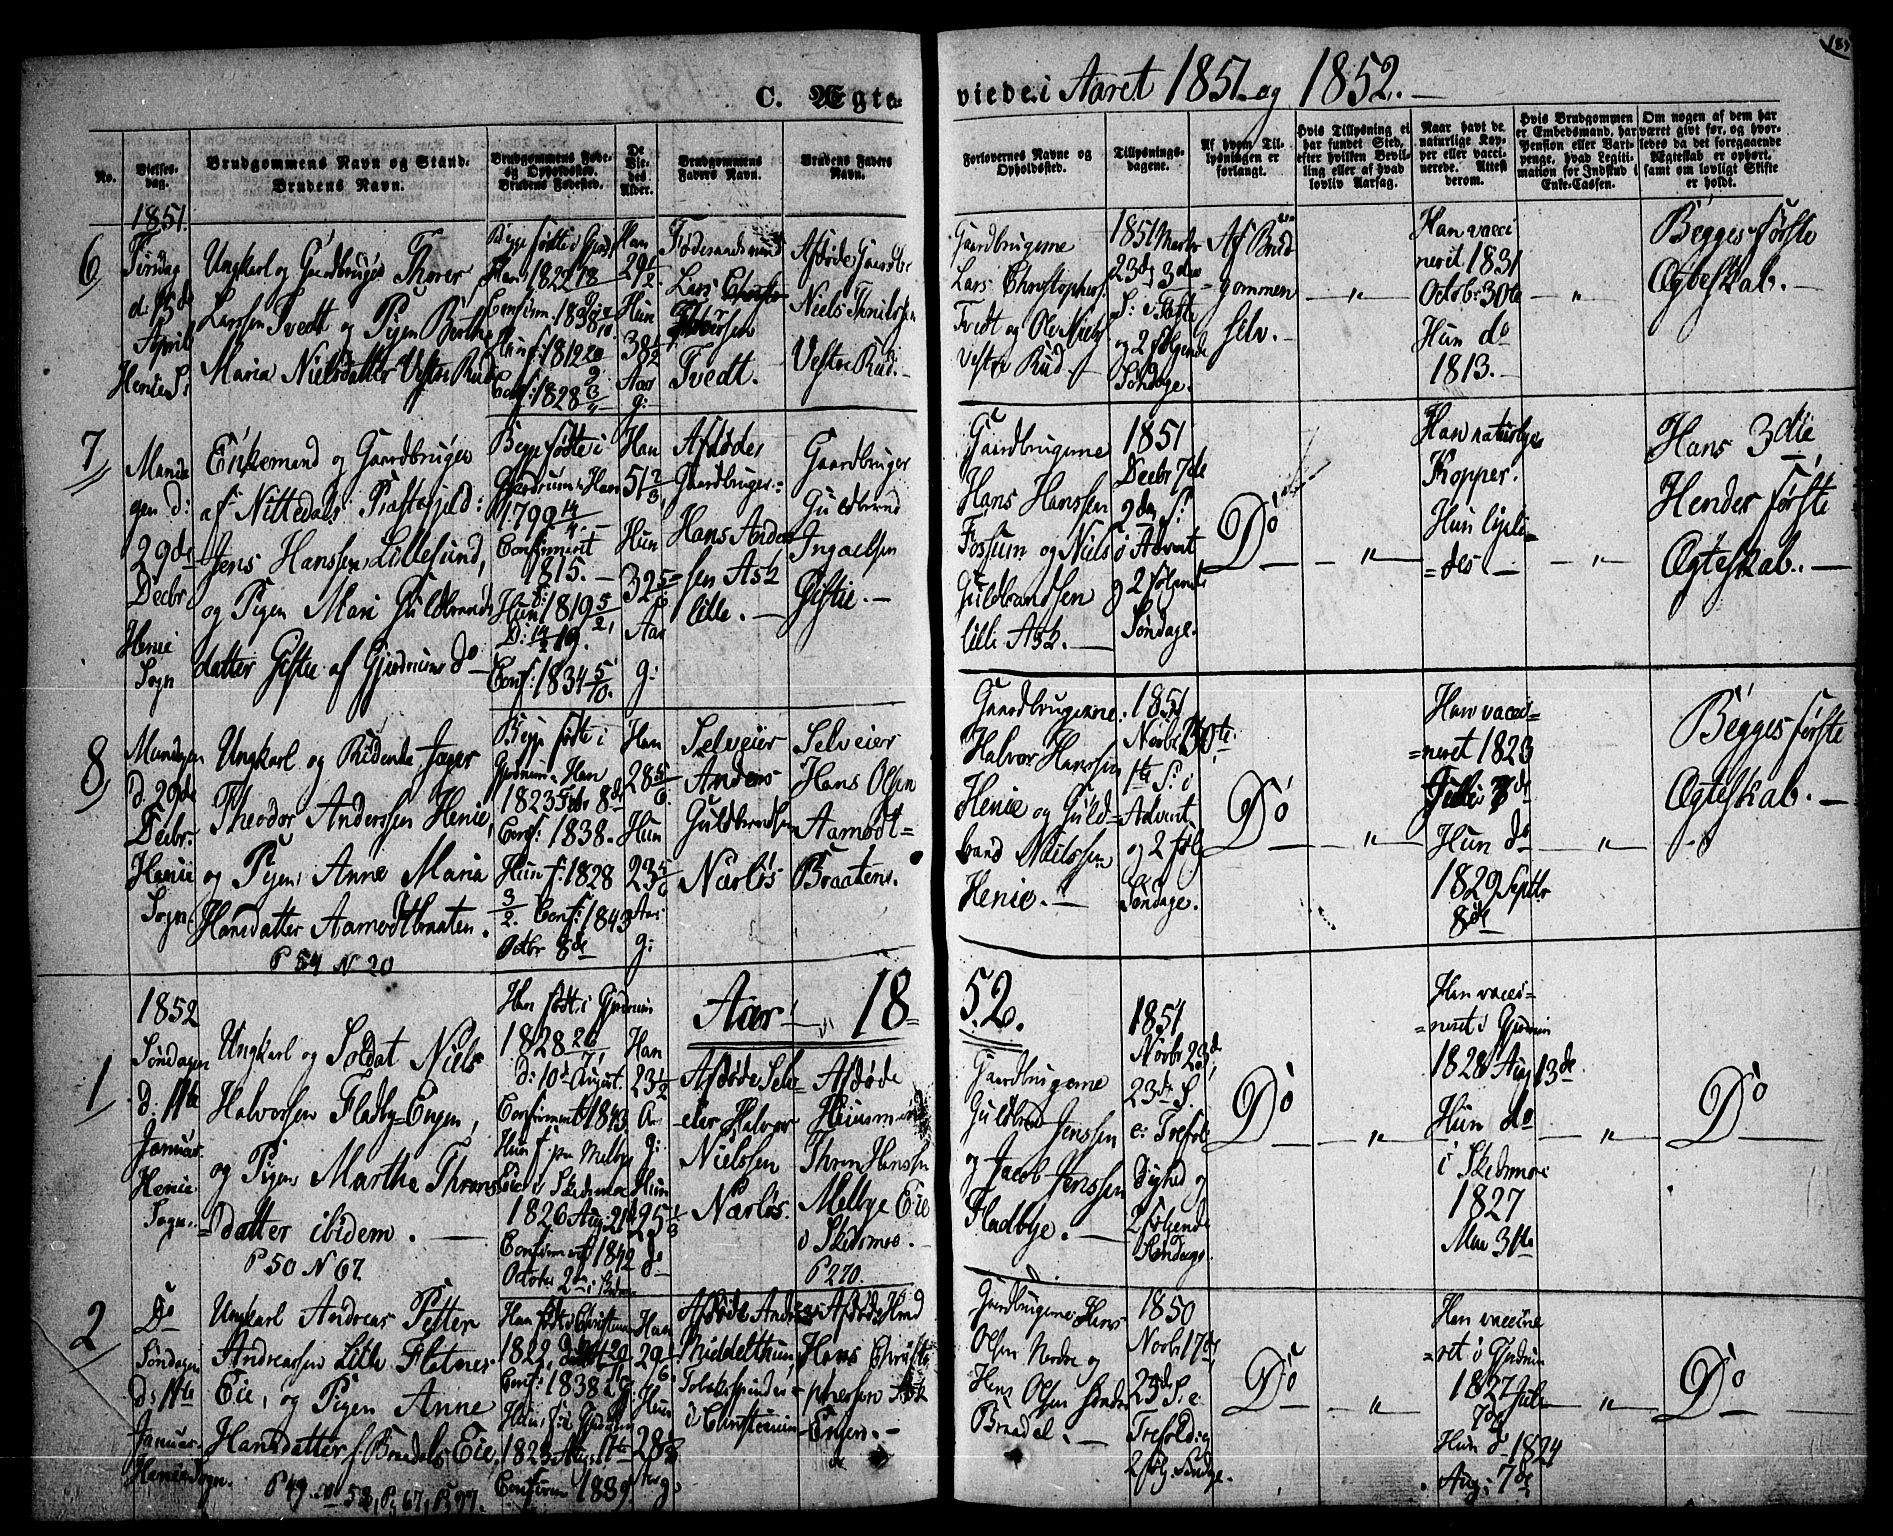 C. Ægte-
viede i Aaret 1851 og 1852.
185
No.
Vielses-
dag.
Brudgommens Navn og Stand.
Brudens Navn.
Brudgommens Føde-
og Opholdssted.
Brudens Fødested.
De
Vie-
des
Alder.
Brudgommens
Faders Navn.
Brudens Faders
Navn.
Forlovernes Navne og
Opholdssted.
Tillysnings-
dagene.
Af hvem Til-
lysningen er
forlangt.
Hvis Tillysning ei
har fundet Sted,
efter hvilken Bevil-
ling eller af hvad
lovlig Aarsag.
Naar havt de
naturlige Kop-
per eller vacci-
nerede. Attest
derom.
Hvis Brudgommen
er Embedsmand, har
Pension eller Vart-
penge, hvad Legiti-
mation for Indskud i
Enke-Cassen.
Om nogen af dem har
været givt før, og hvor-
ledes da det foregaaende
Ægteskab er ophørt,
samt om lovligt Skifte
er holdt.
1851.
6
Tirsdag
April
Ungkarl og Gaardbruger Thorer
Larssen Tvedt og Pigen Berthe
Maria Nielsdatter Vestre Rud
Begge fødte i
Han 1822
Hun f: 1812
Conf: 1828
Han
29 1/2
Hun
38 1/2
Aar
g:
Føderaadsmand
Lars
Tvedt.
Afdøde Gaardbr
Niels
Vestre Rud.
Gaardbrugerne
Lars Christophers:
Tvedt og Ole Niels:
Vestre Rud.
1851 Marts
23de 3die
S: i Faste
og 2 følgende
Søndage.
Af Brud-
gommen
selv.
"
Han vacci
neret 1831
Octbr: 30te
Hun do
1813.
"
Begges første
Ægteskab.
7
Manda
gen d:
29de
Decbr
Henie
Sogn
Enkemand og Gaardbruger
af Nittedals Præstegjeld:
Jens Hanssen Lillesund,
og Pigen Mari Guldbrands
datter Gistie af Gjerdrums do
Begge fødte i
Gjerdrum Han
1799 14/4
Confirmeret
1815.
Hun 1819 5/2,
Conf: 1834 5/10.
Han
51 2/3,
Hun
32 5/6
Aar
g:
Afdøde
Gaardbruger:
Hans Ander
sen Ask
lille.
Gaardbruger
Guldbrand
Ingaelsen
Gistie.
Gaardbrugerne
Hans Hanssen
Fossum og Niels
Guldbrandsen
lille Ask.
1851
Decbr 7de
2den S:
i Advent
og 2 følgende
Søndage.
Do
"
Han naturlige
Kopper.
Hun ligele-
=des
"
Hans 3die,
Hendes første
Ægteskab.
8
Mandagen
d: 29de
Decbr.
Henie
Sogn.
Ungkarl og Ridende Jæger
Theodor Anderssen Henie,
og Pigen Anne Maria
Hansdatter Aamodtbraaten.
P 59 N 20
Begge fødte i
Gjerdrum Han
1823 Febr 8de
Conf: 1838.
Hun f: 1828
3/2. Conf: 1843
Octbr 8de
Han
28 5/6.
Hun
23 5/6
Aar
g:
Selveier
Anders
Guldbrandsen
Nærløs
Selveier
Hans Olsen
Aamodt=
Braaten.
Gaardbrugerne
Halvor Hanssen
Henie og Guld=
brand Nielssen
Henie.
1851
Novbr 30te.
1ste S: i
Advent
og 2 følg
Søndage.
Do
"
Han vacci=
=neret 1823
Hun do
1829 Septbr
8de
"
Begges første
Ægteskab.
Aar 1852.
1852
1
Søndagen
d: 11te
Januar
Henie
Sogn.
Ungkarl og Soldat Niels
Halvorsen Fladby=Engen,
og Pigen Martha Throns
=datter ibidem.
P 50 N 67.
Han født i Gjerdrum
1828 26/7,
d: 10de August.
Confirmeret 1843
Hun f: paa Melbye
Eie i Skedsmoe
1826 Aug 21
Confirmeret 1842
October 2den i Skedsmoe
Han
23 1/2
A
g:
Hun
25 1/3
do
Afdøde Selv-
eier Halvor
Nielssen
Nærløs.
Afdøde
Huusmand
Thron Hanssen
Melbye Eie
i Skedsmoe.
P 270.
Gaardbrugerne
Guldbrand Jenssen
og Jacob Jenssen
Fladbye.
1851
Novbr 23de,
23de S.
e: Trefol-
dighed og
2 følgende
Søndage.
Do
"
Han vacci=
=neret i Gjerdrum
1828 Aug 13de
Hun do
i Skedsmoe
1827
Mai 31te
"
Do
2
Do
Søndagen
d: 11te
Januar.
Henie Sogn.
Ungkarl Andreas Petter
Andreassen Lille Flatner
Eie, og Pigen Anne
Hansdatter f. Braadals Eie.
Han født i Christiania
1822,
Conf: 1838
Hun f: i Gjerdrum
1823 Aug: 17te
Confirm 1839
Han
29 1/6
Hun
28
Aar g:
Afdøde Andreas
Middelthun,
Tobaksspinder
i Christiania
Afdøde Huusmd
Hans Christo
phersen Ask
Engen.
Gaardbrugerne Hans
Olsen Nordre og
Hans Olsen Søndre
Braadal.
1850
Novbr 17de
23de S. e
Trefoldigh
2 følg. Søndge.
Do
"
Han vaccine
=ret i Gjerdrum
1827 Juli
7de
Hun do 1824
Aug: 7de
"
Do